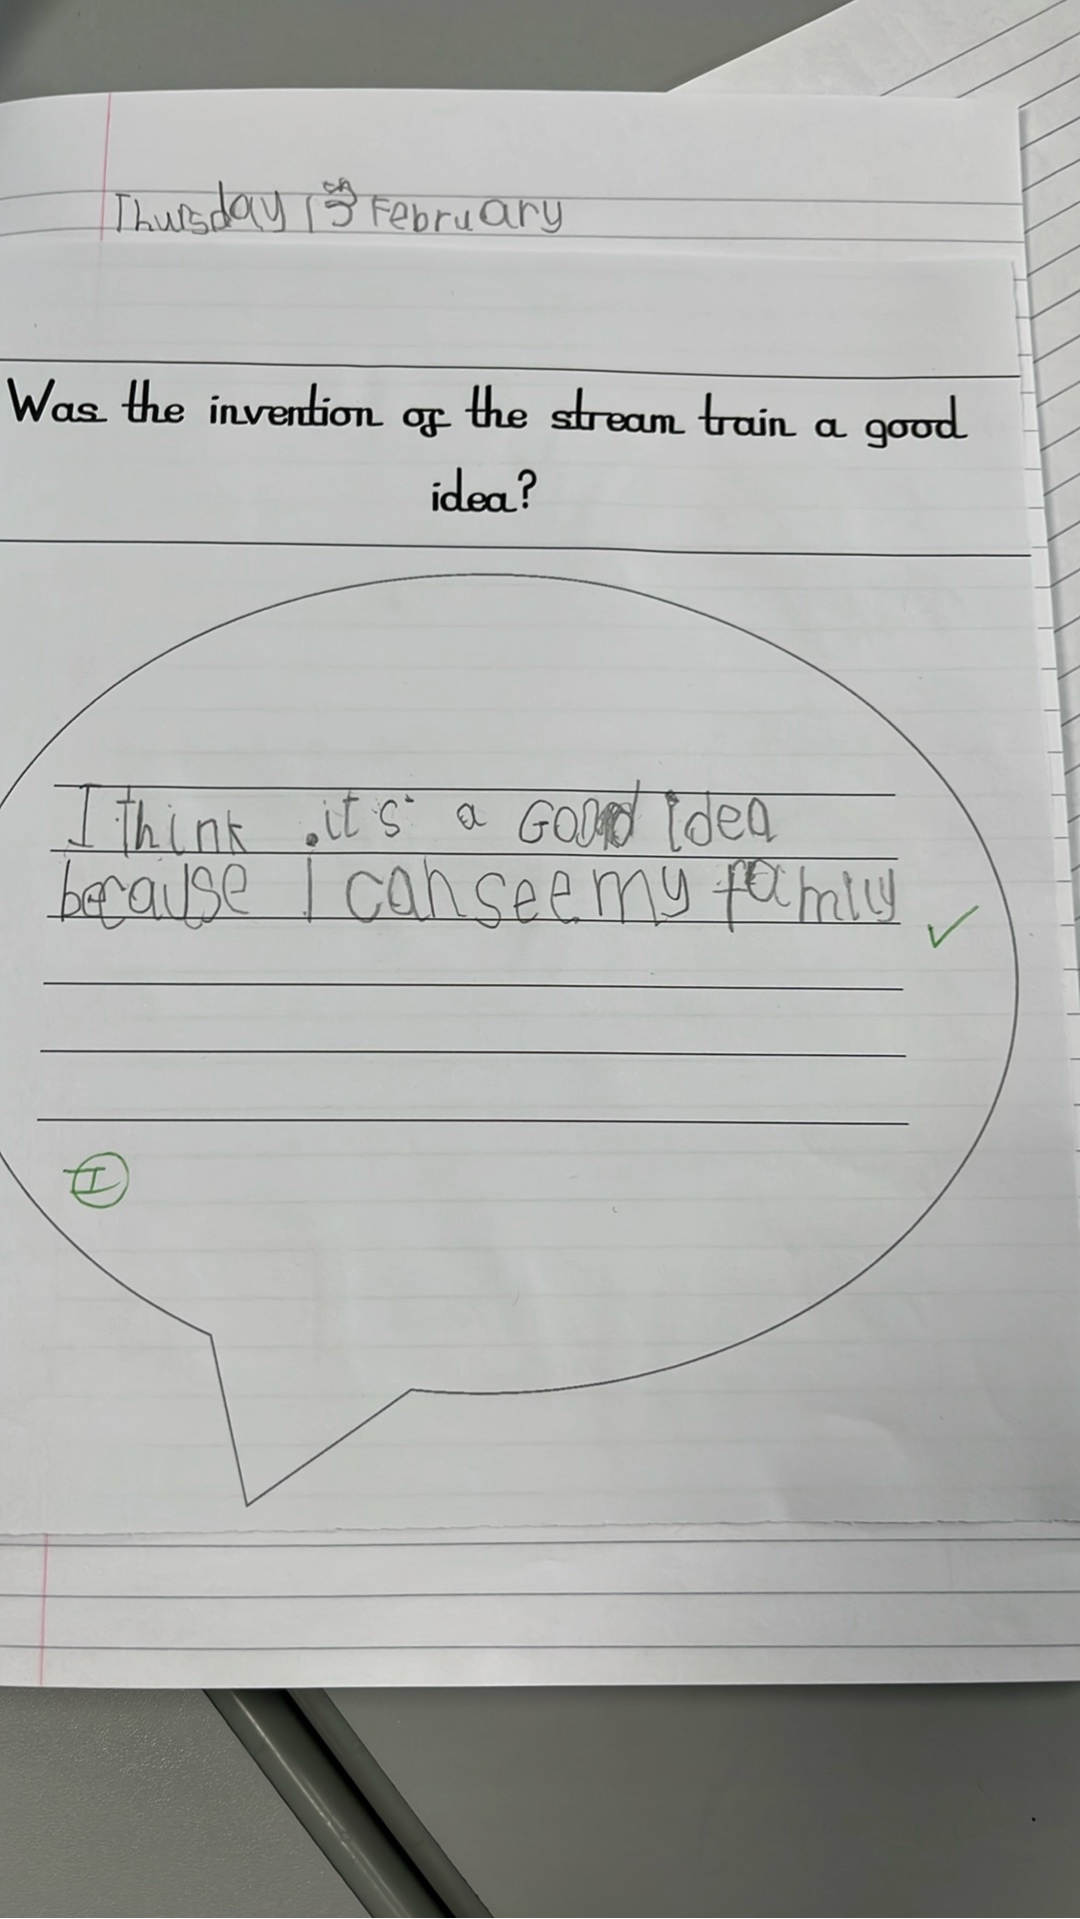 Thursday 13th February
Was the invention of the stream train a good
idea?
I think .it's a Good idea
because I can see my famliy
I